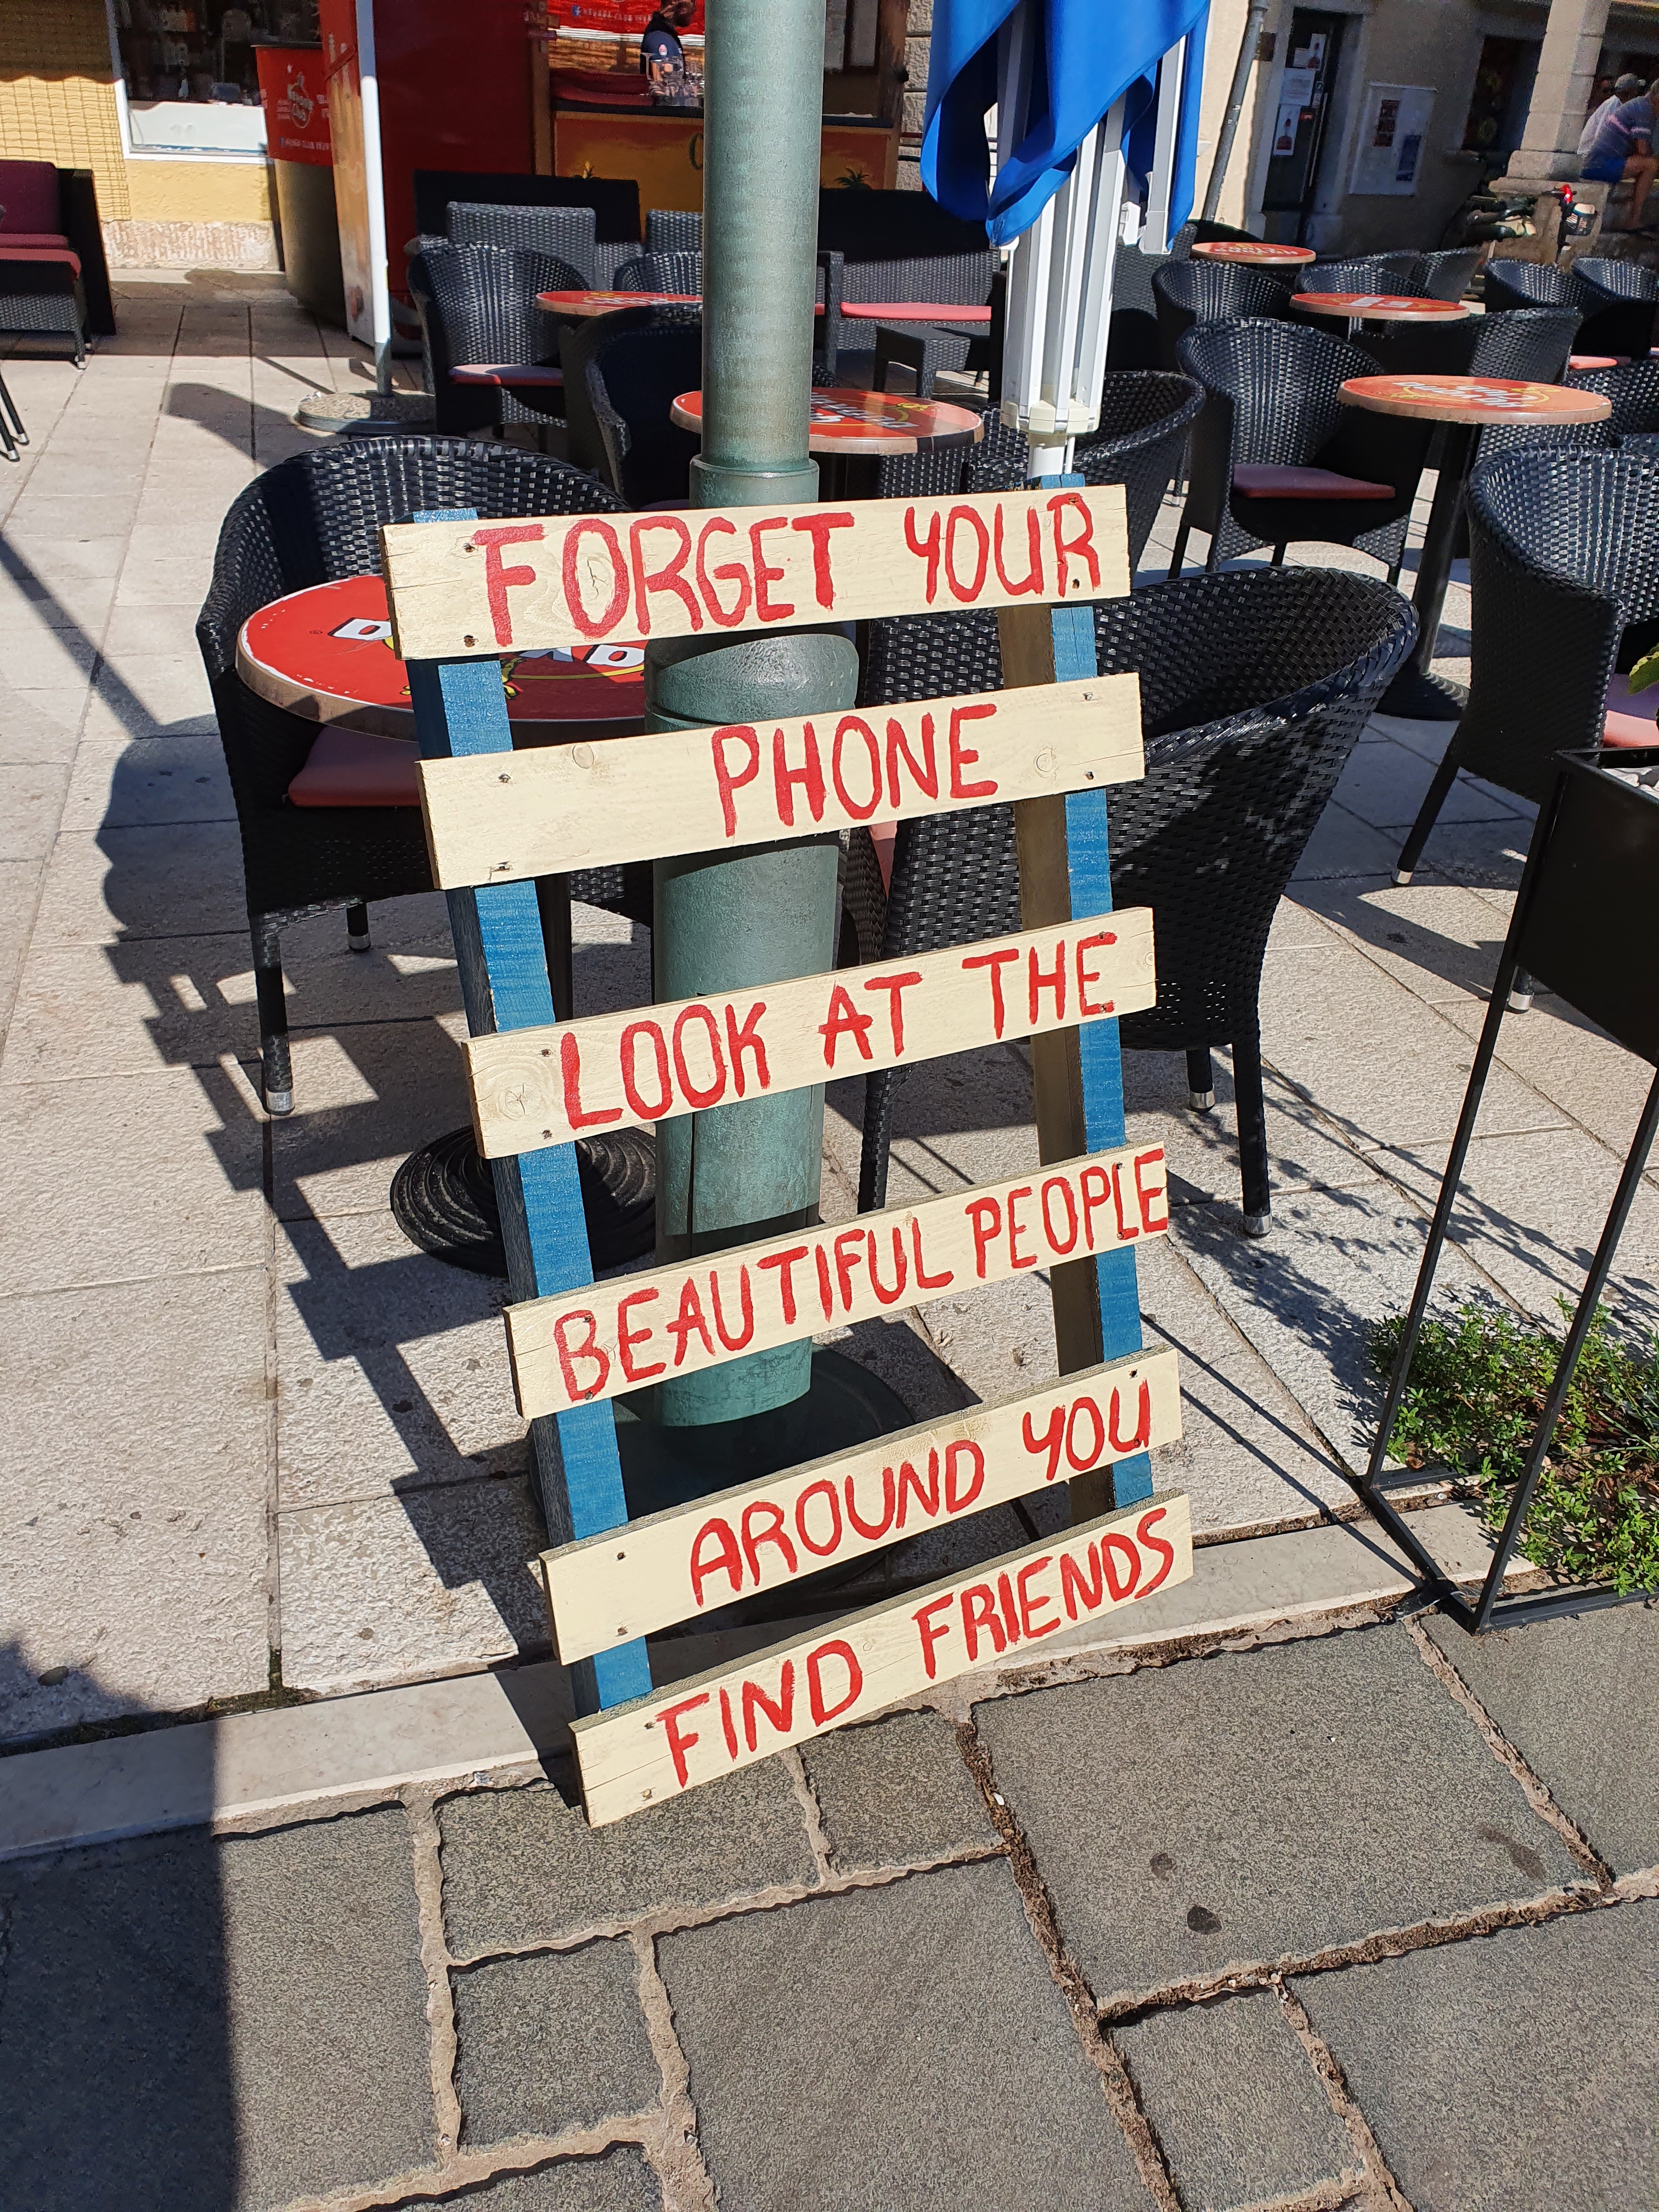 FORGET YOUR
PHONE
LOOK AT THE
BEAUTIFUL PEOPLE
AROUND YOU
FIND FRIENDS